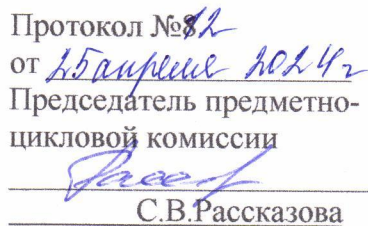 Протокол №12
от 25 апреля 2024 г
Председатель предметно-
цикловой комиссии
С.В.Рассказова